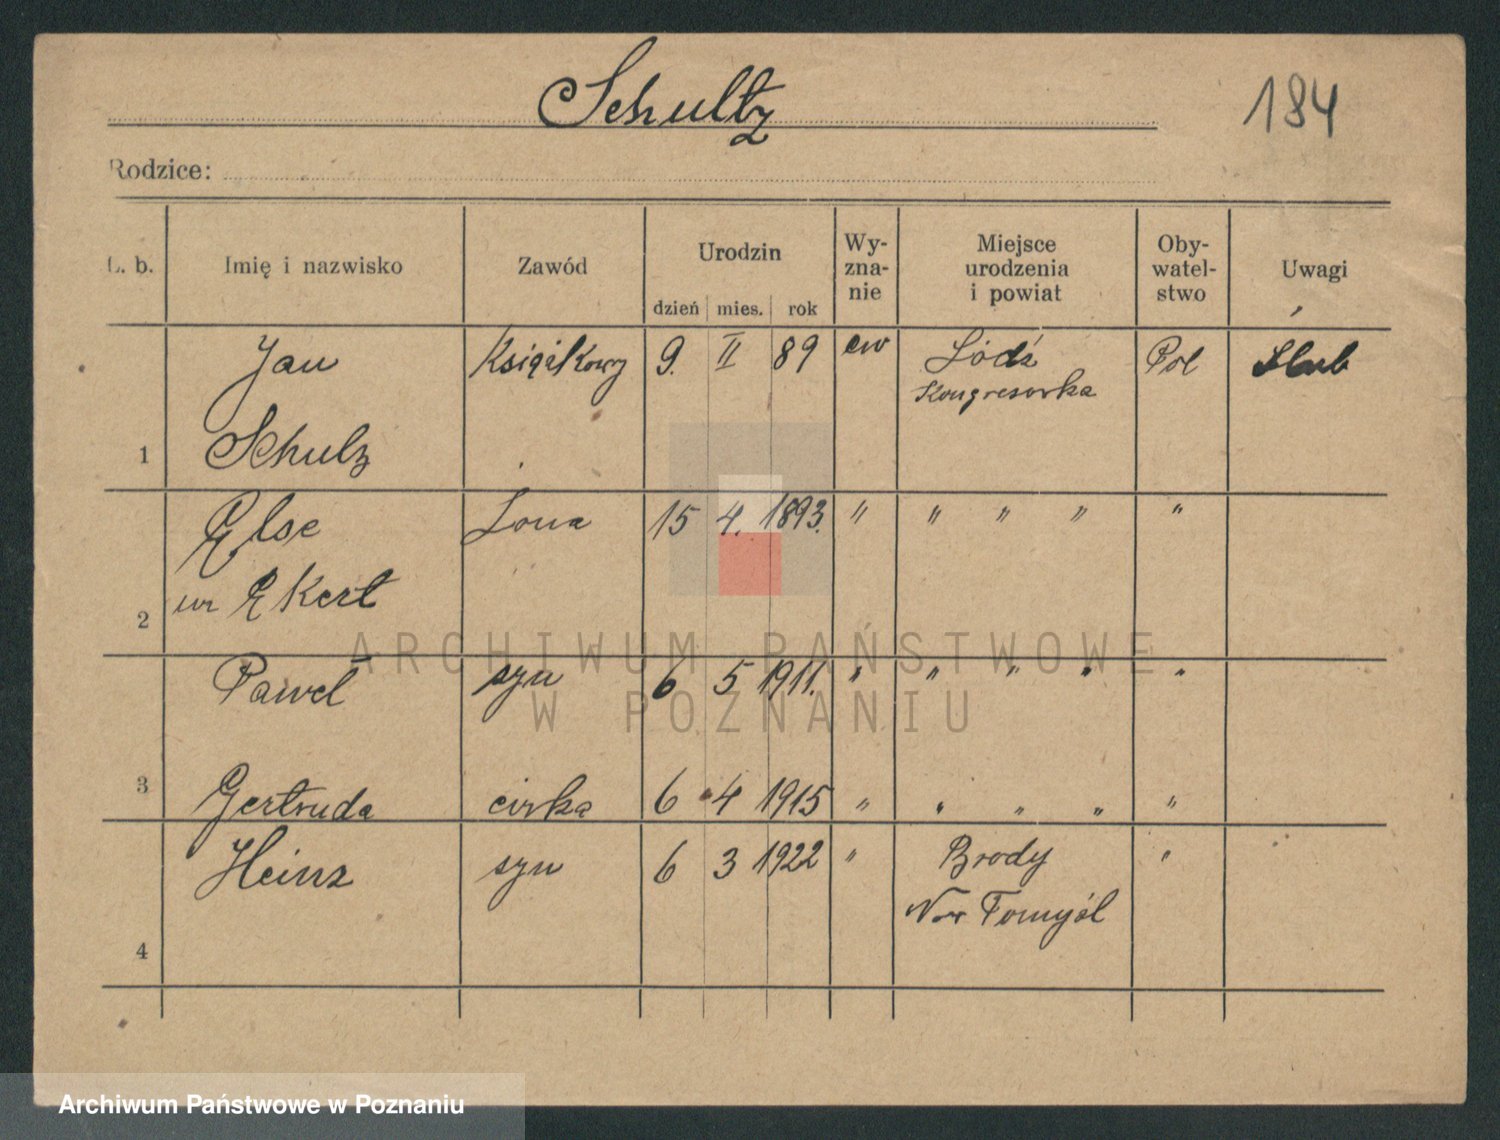 Schultz
184
Rodzice:
L. b. Imię i nazwisko Zawód Urodzin Wy-zna-nie Miejsce urodzenia i powiat Oby-watel-stwo Uwagi
dzień mies. rok
Jan Książkowy 9. II 89 ew Łódź Pol Ślub
Kongresowka
1 Schulz
Else żona 15 4. 1893. " " " " "
2 ur Ekert
Paweł syn 6 5 1911. " " " " "
3 Gertruda curka 6 4 1915 " " " " "
Heinz syn 6 3 1922 " Brody "
Now Tomyśl
4
ARCHIWUM PAŃSTWOWE
W POZNANIU
Archiwum Państwowe w Poznaniu